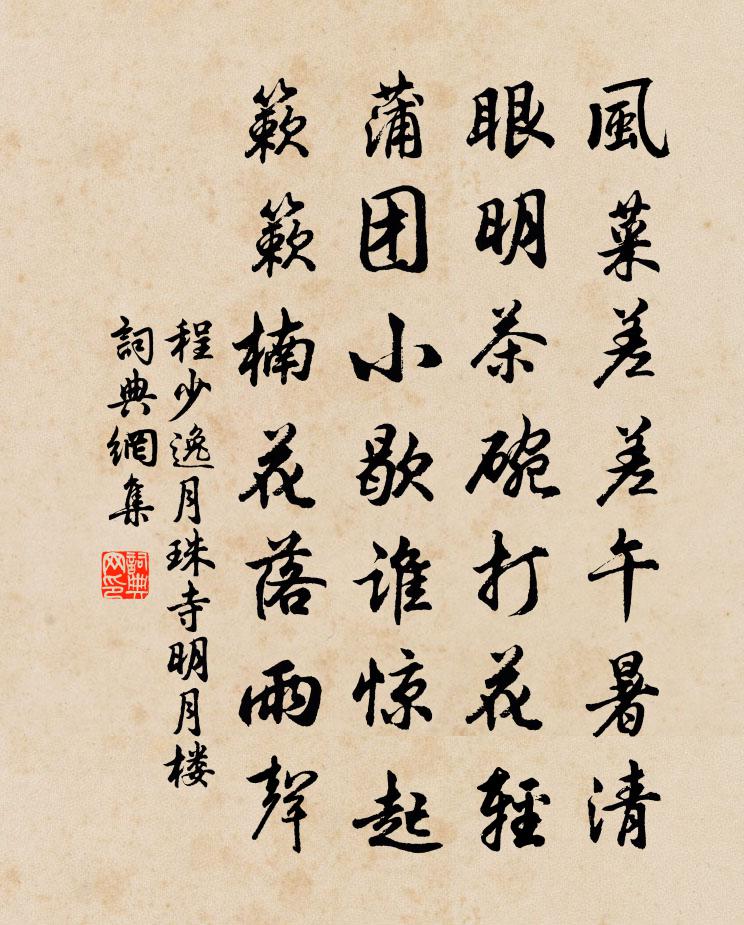 風葉差差午暑清
眼明茶碗打花輕
蒲团小歇谁惊起
簌簌楠花落雨聲
程少逸月珠寺明月楼
詞典網集
詞典网印